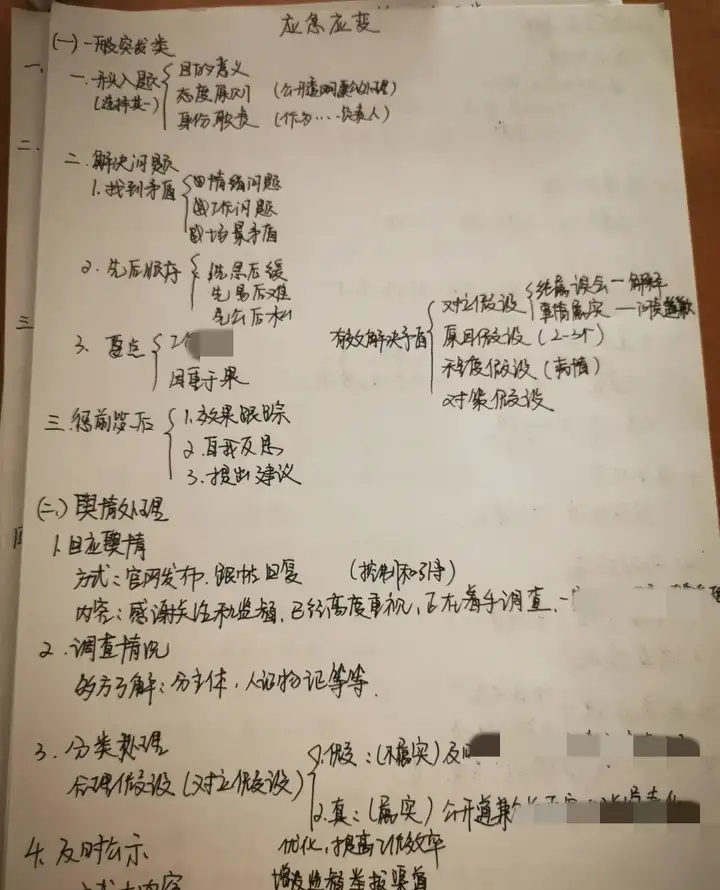 应急应变
(一)一般突发类
一.开头入题
(选择其一)
目的意义
态度原则 (公开透明秉公处理)
身份职责 (作为……负责人)
二.解决问题
1.找到矛盾
情绪问题
工作问题
场景矛盾
2.先后顺序
先急后缓
先易后难
先公后私
3.要点
因事于果
有效解决矛盾
对立假设
纯属误会—解释
事情属实—问责道歉
原因假设(2-3个)
程度假设(病情)
对策假设
三.惩前毖后
1.效果跟踪
2.自我反思
3.提出建议
(二)舆情处理
1.回应舆情
方式:官网发布.跟帖回复 (控制和引导)
内容:感谢关注和监督,已经高度重视,正在着手调查,一
2.调查情况
多方了解:分主体,人证物证等等.
3.分类处理
合理假设(对立假设)
1.假:(不属实)及
2.真:(属实)公开道
优化,提高工作效率
4.及时公示
增设监督举报渠道